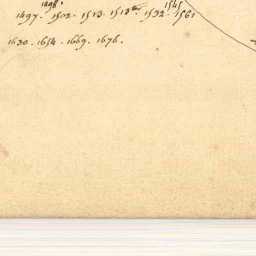 1498. 1545
1497. 1502. 1513. 1513bis. 1532. 1561
1630. 1654. 1669. 1676.